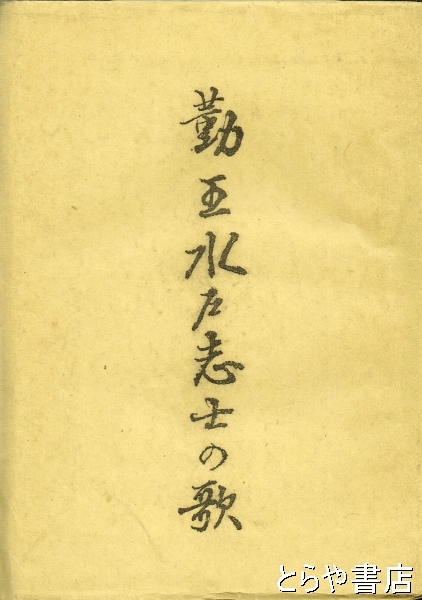 勤王水戸志士の歌
とらや書店